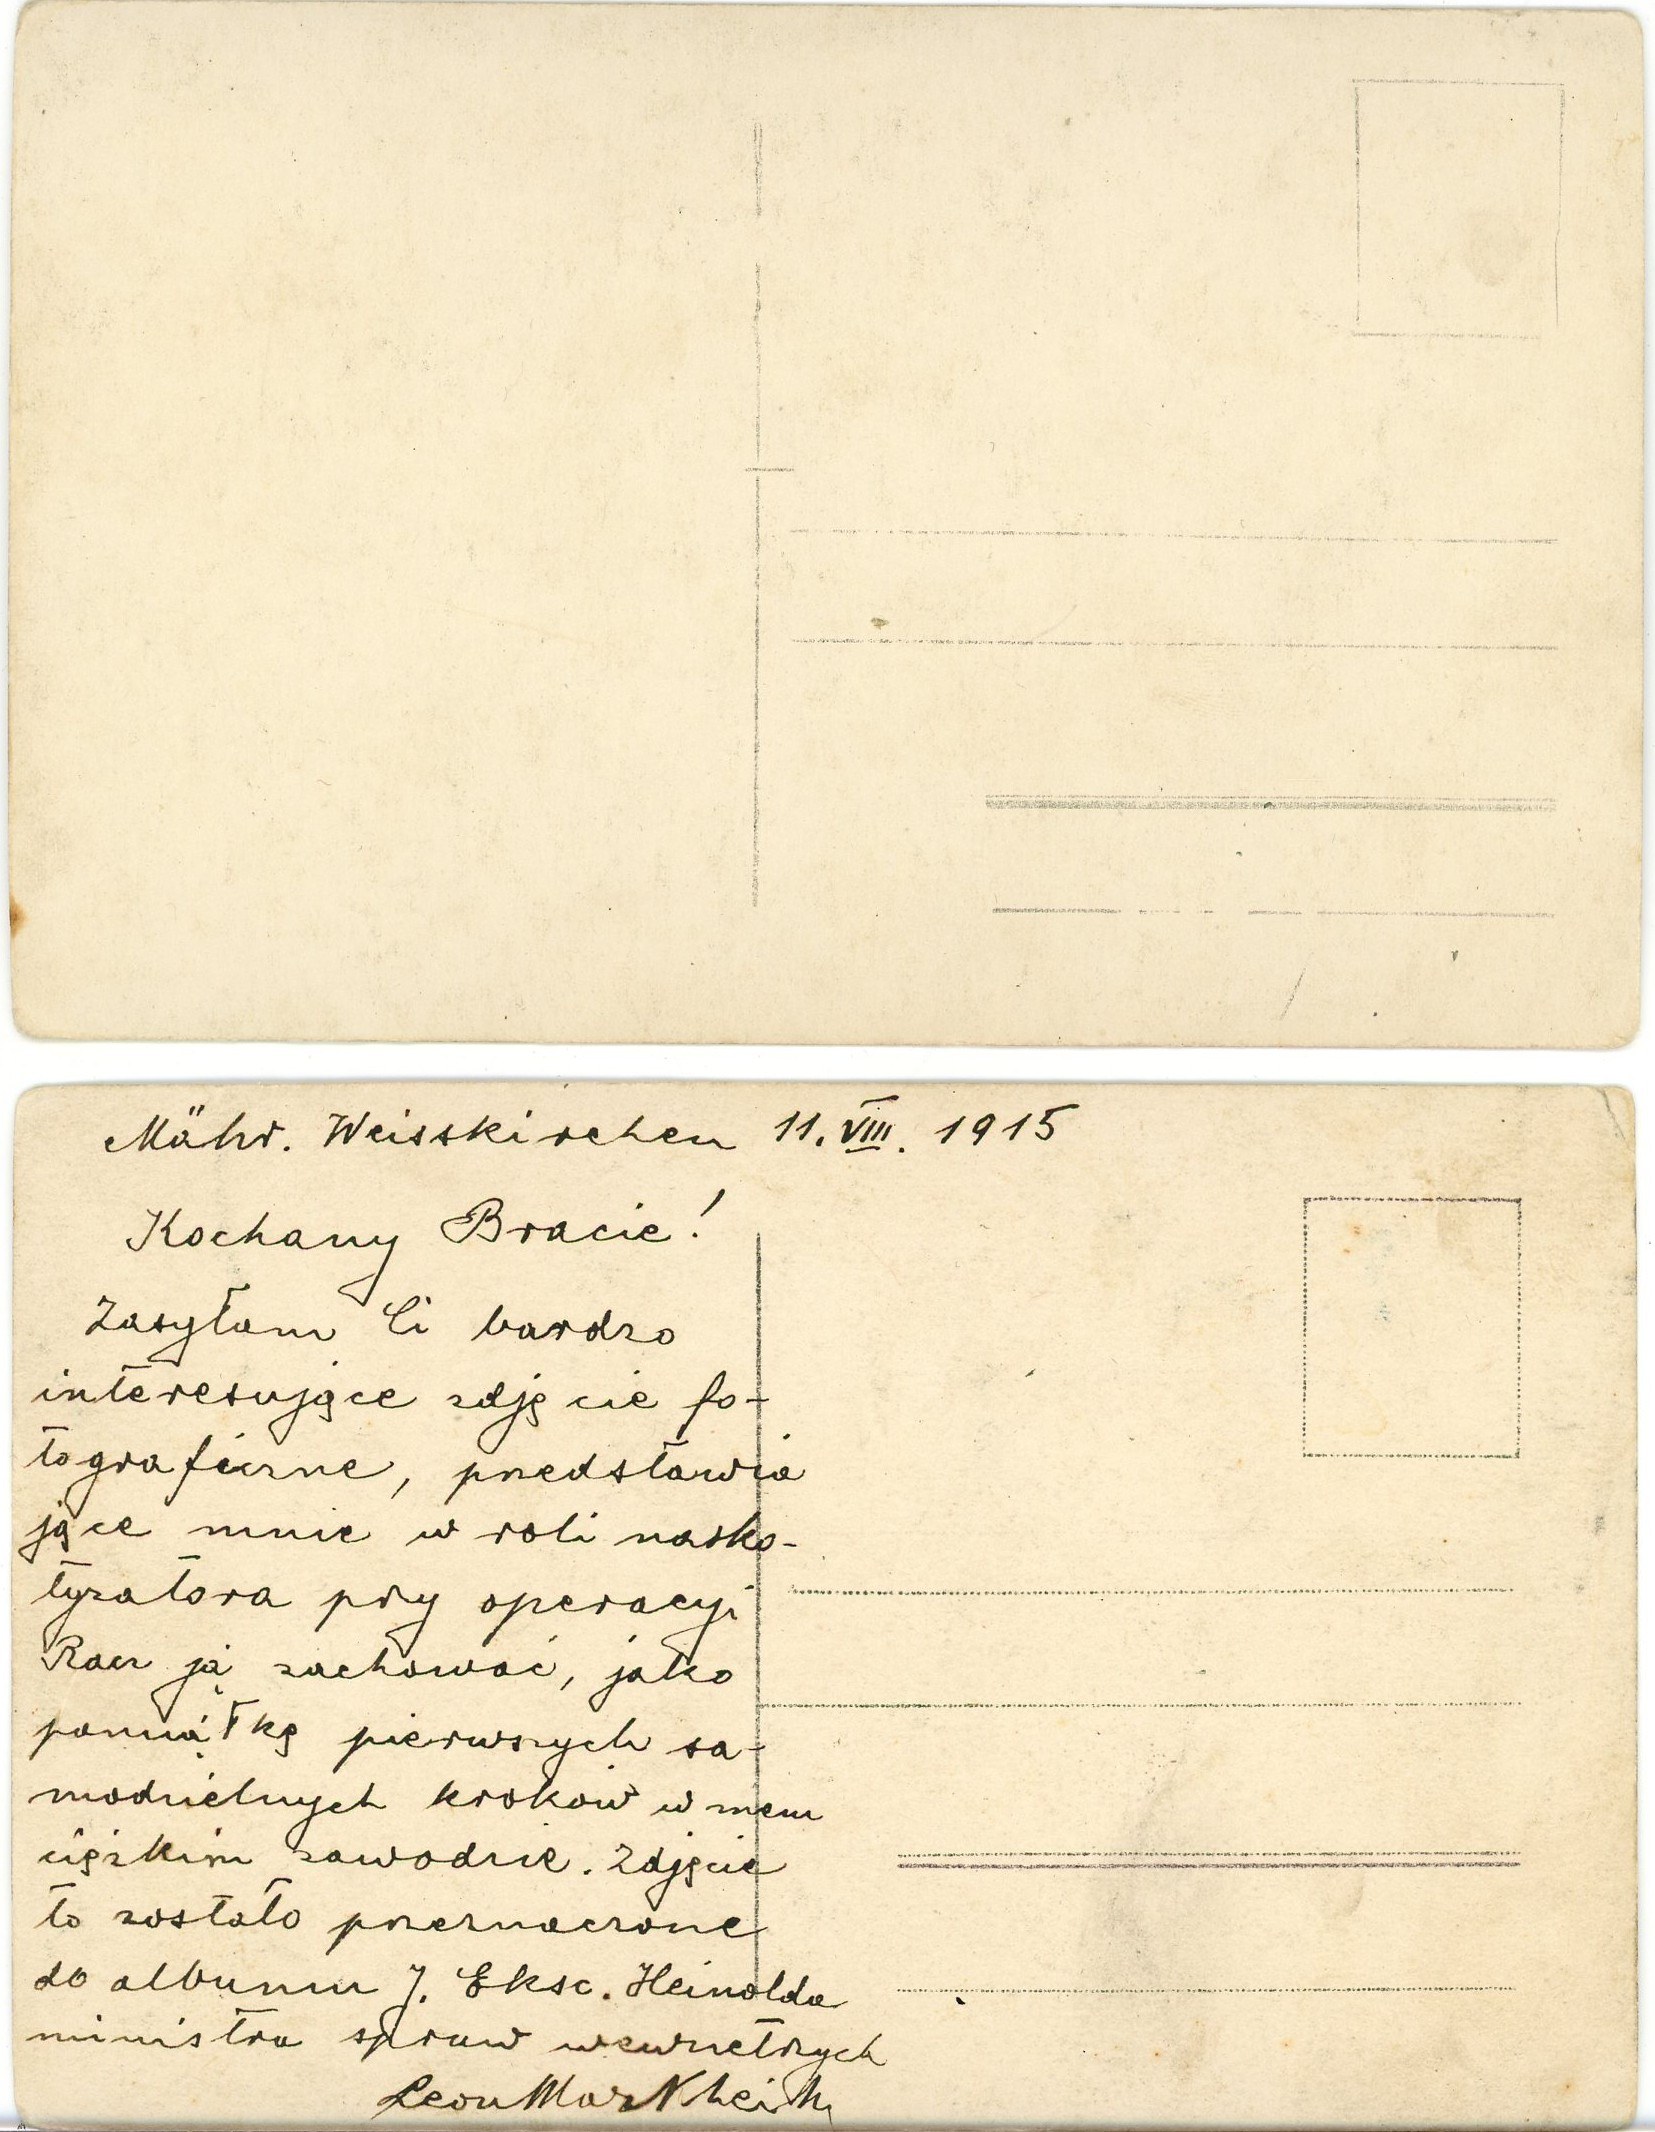 Mähr. Weisskirchen 11. VIII. 1915
Kochany Bracie!
Zasyłam Ci bardzo
interesujące zdjęcie fo-
tograficzne, przedstawia
jące mnie w roli narko-
tyzatora przy operacyi
Racz ją zachować, jako
pamiątkę pierwszych sa-
modzielnych kroków w mem
ciężkim zawodzie. Zdjęcie
to zostało przeznaczone
do albumu J. Eksc. Heinolda
ministra spraw wewnetrzych
Leon